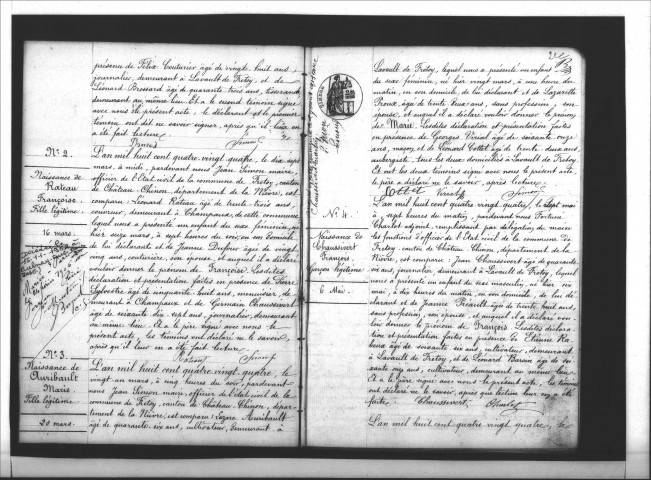 présence de Félix Couturier âgé de vingt huit ans,
journalier, demeurant à Lavault de Frétoy, et de
Léonard Bressard âgé de quarante trois ans, tisserand
demeurant au même lieu. Et a le second témoin signé
avec nous le présent acte, le déclarant et le premier
témoin ont dit ne savoir signer, après qu'il leur en
a été fait lecture.
Simon
N° 2.
Naissance de
Rateau
Françoise
Fille légitime.
16 mars.
L'an mil huit cent quatre-vingt quatre, le dix sept
mars, à midi, pardevant nous Jean Simon maire,
officier de l'état civil de la commune de Frétoy, canton
de Château-Chinon, département de la Nièvre, est
comparu Léonard Rateau âgé de trente trois ans,
couvreur, demeurant à Champeaux, de cette commune
lequel nous a présenté un enfant du sexe féminin, né
hier seize mars, à sept heures du soir, en son domicile
de lui déclarant et de Jeanne Dufour âgée de vingt
cinq ans, couturière, son épouse, et auquel il a déclaré
vouloir donner le prénom de Françoise. Lesdites
déclaration et présentation faites en présence de Pierre
Sylvestre âgé de cinquante huit ans, menuisier, de
meurant à Champeaux et de Germain Chaussevert
âgé de soixante dix sept ans, journalier, demeurant
au même lieu. Et a le père signé avec nous le
présent acte, les témoins ont déclaré ne le savoir
après qu'il leur en a été fait lecture.
Rateau Simon
N° 3.
Naissance de
Auribault
Marie
Fille légitime.
20 mars.
L'an mil huit cent quatre-vingt quatre, le
vingt un mars, à cinq heures du soir, pardevant
nous Jean Simon maire, officier de l'état civil de la
commune de Frétoy, canton de Château-Chinon, dépar-
tement de la Nièvre, est comparu Lazare Auribault
âgé de quarante six ans, cultivateur, demeurant à
Lavault de Frétoy, lequel nous a présenté un enfant
du sexe féminin, né hier vingt mars, à une heure du
matin, en son domicile, de lui déclarant et de Lazarette
âgée de trente deux ans, sans profession, son
épouse, et auquel il a déclaré vouloir donner le prénom
de Marie. Lesdites déclaration et présentation faites
en présence de Georges âgé de quarante onze
ans, maçon, et de Léonard Cottet âgé de trente deux ans,
aubergiste, tous les deux domiciliés à Lavault de Frétoy.
Et ont les deux témoins signé avec nous le présent acte
le père a déclaré ne le savoir, après lecture.
Cottet Simon
N° 4.
Naissance de
Chaussevert
François
Garçon légitime
6 Mai.
L'an mil huit cent quatre-vingt quatre, le sept mai
à sept heures du matin, pardevant nous Fortuné
Charlot adjoint, remplissant par délégation du maire
les fonctions d'officier de l'état civil de la commune de
Frétoy, canton de Château-Chinon, département de la
Nièvre, est comparu Jean Chaussevert âgé de quarante
six ans, journalier, demeurant à Lavault de Frétoy, lequel
nous a présenté un enfant du sexe masculin, né hier six
mai, à dix heures du matin, en son domicile, de lui dé-
clarant et de Jeanne âgée de trente huit ans,
sans profession, son épouse, et auquel il a déclaré vou-
loir donner le prénom de François. Lesdites déclara-
tion et présentation faites en présence de Etienne Ra-
âgé de soixante six ans, cultivateur, demeurant
à Lavault de Frétoy, et de Léonard âgé de soix-
ante cinq ans, cultivateur, demeurant au même lieu.
Et a le père signé avec nous le présent acte, les témoins
ont déclaré ne le savoir, après que lecture leur en a été
faite. Chaussevert Charlot
L'an mil huit cent quatre vingt quatre, le